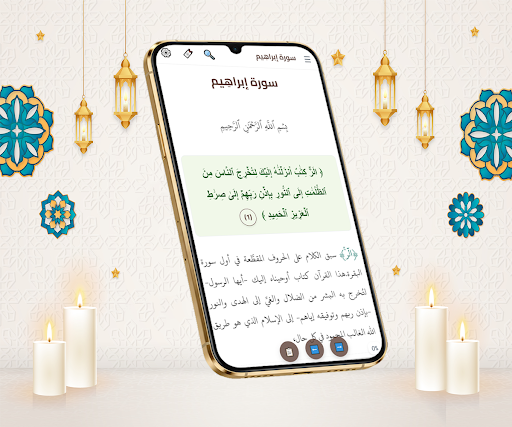 سورة إبراهيم
سورة إبراهيم
بِسْمِ ٱللَّهِ ٱلرَّحْمَٰنِ ٱلرَّحِيمِ
﴿ الٓرۚ كِتَٰبٌ أَنزَلْنَٰهُ إِلَيْكَ لِتُخْرِجَ ٱلنَّاسَ مِنَ
ٱلظُّلُمَٰتِ إِلَى ٱلنُّورِ بِإِذْنِ رَبِّهِمْ إِلَىٰ صِرَٰطِ
ٱلْعَزِيزِ ٱلْحَمِيدِ ﴾ (١)
﴿الٓرۚ﴾ سبق الكلام على الحروف المقطَّعة في أول سورة
البقرة.هذا القرآن كتاب أوحيناه إليك -أيها الرسول-
لتُخرج به البشر من الضلال والغيِّ إلى الهدى والنور
-بإذن ربهم وتوفيقه إياهم- إلى الإسلام الذي هو طريق
الله الغالب المحمود في كل حال،